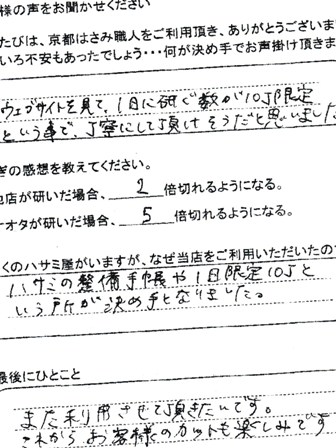 様の声をお聞かせください
たびは、京都はさみ職人をご利用頂き、ありがとうございま
いろ不安もあったでしょう・・・何が決め手でお声掛け頂きま
ウェブサイトを見て、1日に研ぐ数が10J限定
という事で、丁寧にして頂けそうだと思いました
ぎの感想を教えてください。
他店が研いだ場合、 2 倍切れるようになる。
オタが研いだ場合、 5 倍切れるようになる。
くのハサミ屋がいますが、なぜ当店をご利用いただいたので
ハサミの整備手帳や1日限定10Jと
いう所が決め手となりました。
最後にひとこと
また利用させて頂きたいです。
これからお客様のカットも楽しみです